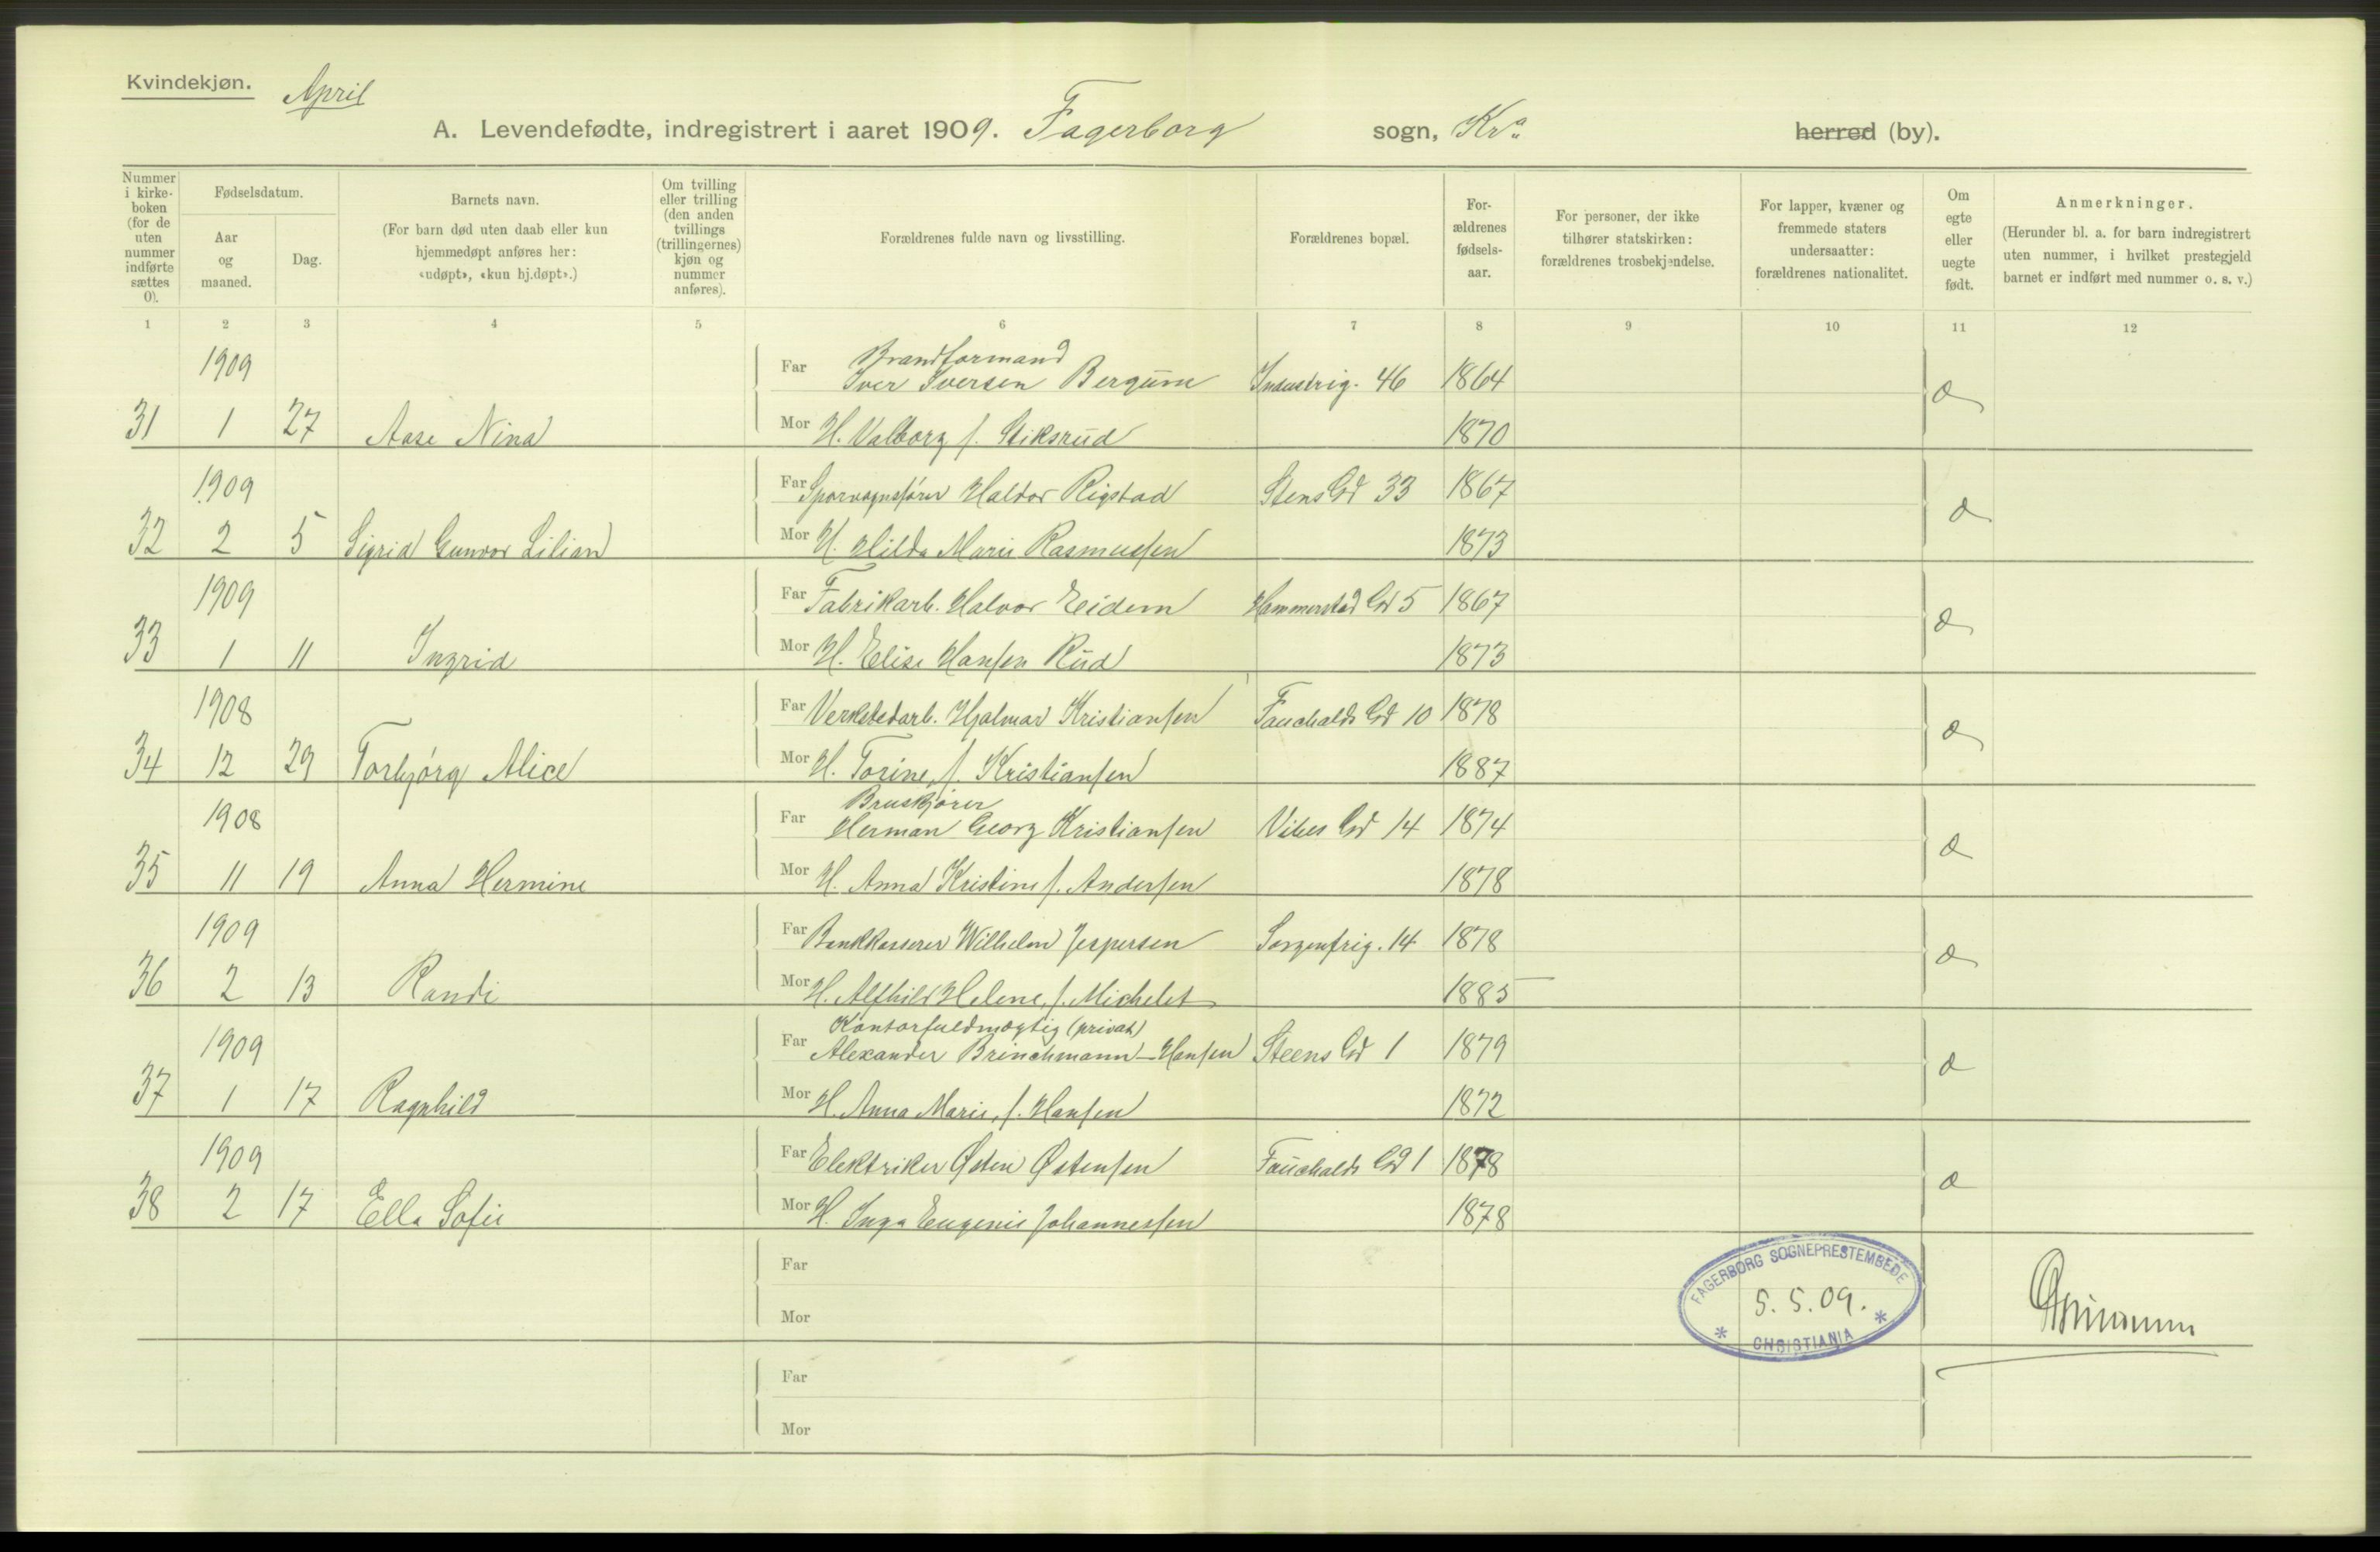 Kvindekjøn. April
A. Levendefødte, indregistrert i aaret 1909. Fagerborg sogn, Kra herred (by).
Nummer i kirke- boken (for de uten nummer indførte sættes 0).
Fødselsdatum.
Aar og maaned.
Dag.
Barnets navn.
(For barn død uten daab eller kun hjemmedøpt anføres her: «udøpt», «kun hj.døpt».)
Om tvilling eller trilling (den anden tvillings (trillingernes) kjøn og nummer anføres).
Forældrenes fulde navn og livsstilling.
Forældrenes bopæl.
For- ældrenes fødsels- aar.
For personer, der ikke tilhører statskirken: forældrenes trosbekjendelse.
For lapper, kvæner og fremmede staters undersaatter: forældrenes nationalitet.
Om egte eller uegte født.
Anmerkninger.
(Herunder bl. a. for barn indregistrert uten nummer, i hvilket prestegjeld barnet er indført med nummer o. s. v.)
1 2 3 4 5 6 7 8 9 10 11 12
1909 Far Brandformand
Iver Iversen Bergum Industrig. 46 1864
31 1 27 Aase Nina Mor H. Valborg f. Stiksrud 1870
1909 Far Sporvognsfører Haldor Rigstad Stens Gd 33 1867
32 2 5 Sigrid Gunvor Lilian Mor H. Hilda Marie Rasmussen 1873
1909 Far Fabrikarb. Halvor Eidem Hammerstad Gd 5 1867
33 1 11 Ingrid Mor H. Elise Hansen Rud 1873
1908 Far Verkstedarb. Hjalmar Kristiansen Fauchalds Gd 10 1878
34 12 29 Torbjørg Alice Mor H. Torine, f. Kristiansen 1887
1908 Far Bruskjører
Herman Georg Kristiansen Vibes Gd 14 1874
35 11 19 Anna Hermine Mor H. Anna Kristine f. Andersen 1878
1909 Far Bankkasserer Wilhelm Jespersen Sorgenfrig. 14 1878
36 2 13 Randi Mor H. Alfhild Helene, f. Michelet 1885
1909 Far Kontorfuldmægtig (privat)
Alexander Brinchmann-Hansen Steens Gd 1 1879
37 1 17 Ragnhild Mor H. Anna Marie, f. Hansen 1872
1909 Far Elektriker Østen Østensen Fauchalds Gd 1 1878
38 2 17 Ella Sofie Mor H. Inga Eugenie Johannessen 1878
Far
Mor
FAGERBORG SOGNEPRESTEMBEDE
5.5.09.
* CHRISTIANIA *
Far
Mor